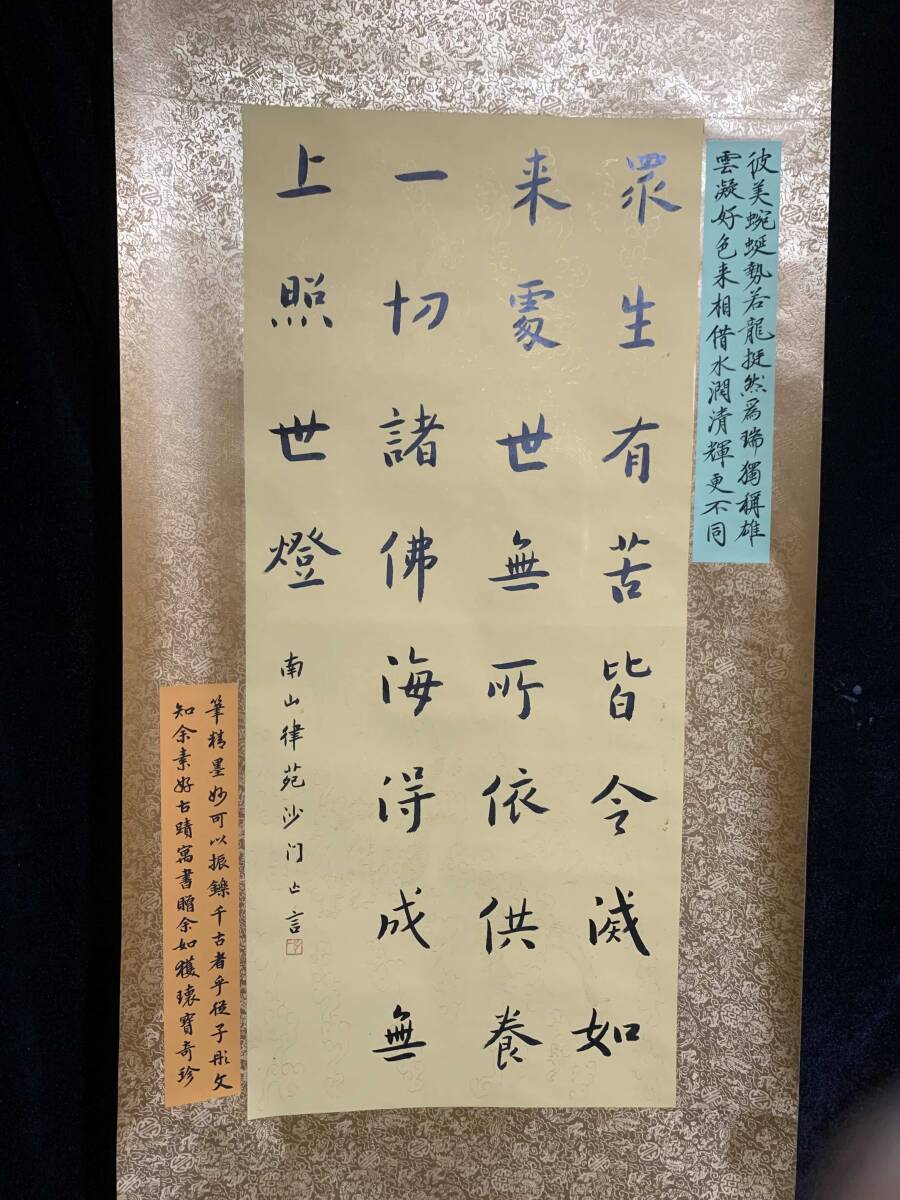 彼美蜿蜒勢若龍挺然爲瑞獨稱雄
雲凝好色来相借水潤清輝更不同
眾生有苦皆令滅如
来處世無所依供養
一切諸佛海得成無
上照世燈
南山律苑沙门止言
筆精墨妙可以振鑠千古者乎從子彤文
知余素好古蹟寓書贈余如獲瓌寶奇珍